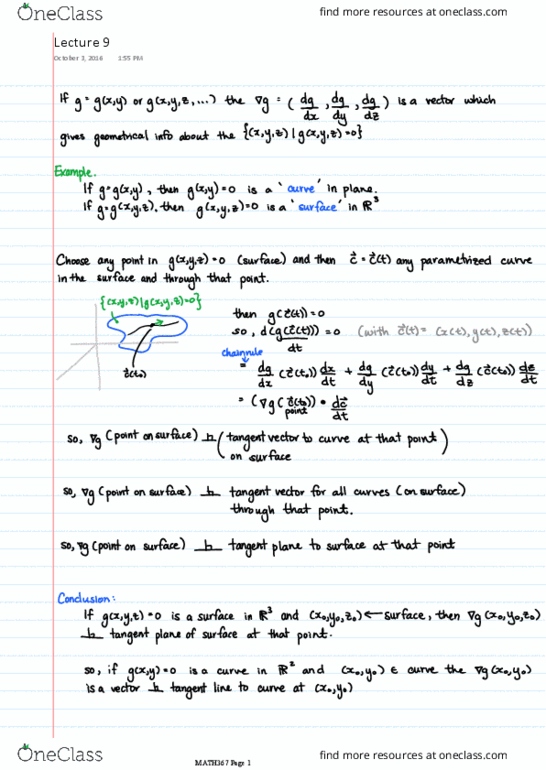 OneClass find more resources at oneclass.com
Lecture 9
October 3, 2016 1:55 PM
If g = g(x,y) or g(x,y,z,...) the ∇g = (dg/dx, dg/dy, dg/dz) is a vector which
gives geometrical info about the {(x,y,z) | g(x,y,z)=0}
Example.
If g=g(x,y), then g(x,y)=0 is a 'curve' in plane.
If g=g(x,y,z), then g(x,y,z)=0 is a 'surface' in ℝ³
Choose any point in g(x,y,z)=0 (surface) and then c⃗ = c⃗(t) any parametrized curve
in the surface and through that point.
{(x,y,z) | g(x,y,z)=0}
c⃗(t₀)
then g(c⃗(t))=0
so, d(g(c⃗(t)))/dt = 0 (with c⃗(t) = (x(t), y(t), z(t))
chain rule
= dg/dx (c⃗(t₀)) dx/dt + dg/dy (c⃗(t₀)) dy/dt + dg/dz (c⃗(t₀)) dz/dt
= (∇g(c⃗(t₀)) • dc⃗/dt
point
so, ∇g (point on surface) ⊥ (tangent vector to curve at that point)
on surface
so, ∇g (point on surface) ⊥ tangent vector for all curves (on surface)
through that point.
so, ∇g (point on surface) ⊥ tangent plane to surface at that point
Conclusion:
If g(x,y,z)=0 is a surface in ℝ³ and (x₀,y₀,z₀) ← surface, then ∇g(x₀,y₀,z₀)
⊥ tangent plane of surface at that point.
so, if g(x,y)=0 is a curve in ℝ² and (x₀,y₀) ∈ curve the ∇g(x₀,y₀)
is a vector ⊥ tangent line to curve at (x₀,y₀)
MATH267 Page 1
OneClass find more resources at oneclass.com